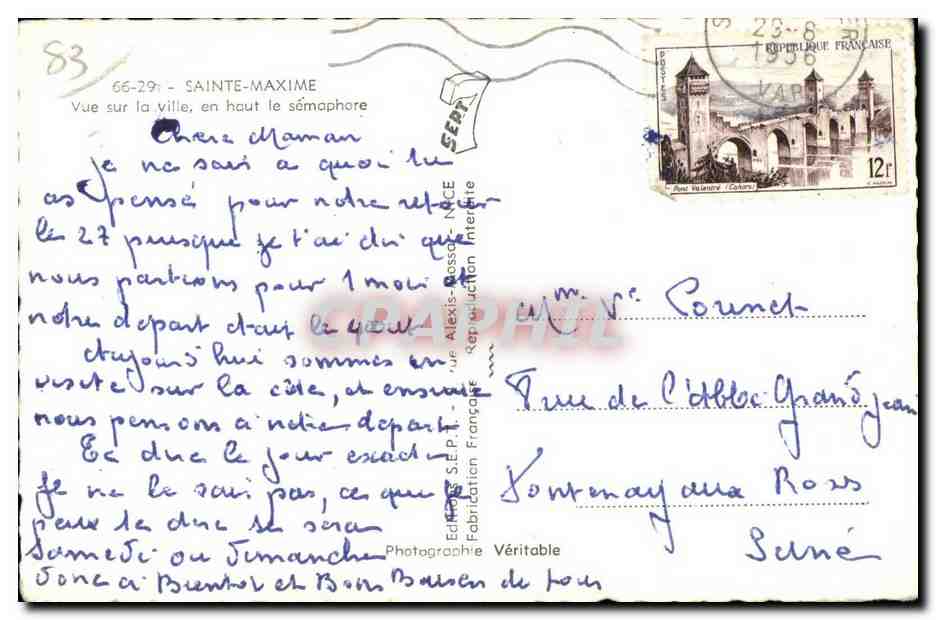 83
66-29. - SAINTE-MAXIME
Vue sur la ville, en haut le sémaphore
Chere Maman
je ne sais a quoi tu
as pensé pour notre retour
le 27 puisque je t'ai dis que
nous partions pour 1 mois et
notre depart etait le 4 aout
Aujourd'hui sommes en
visite sur la côte, et ensuite
nous pensons a notre depart
Te dire le jour exact
Je ne le sais pas, ce que je
peux te dire se sera
Samedi ou Dimanche
donc a Bientot et Bons Baisers de tous
SEPT
Editions S.E.P.T. - rue Alexis-Mossa - NICE
Fabrication Française Reproduction Interdite
Photographie Véritable
CPAPHIL
23-8
1956
VAR
REPUBLIQUE FRANÇAISE
POSTES
12F
Pont Valentré (Cahors)
Mme Ve
rue de l'Abbé Grandjean
Fontenay aux Roses
Seine